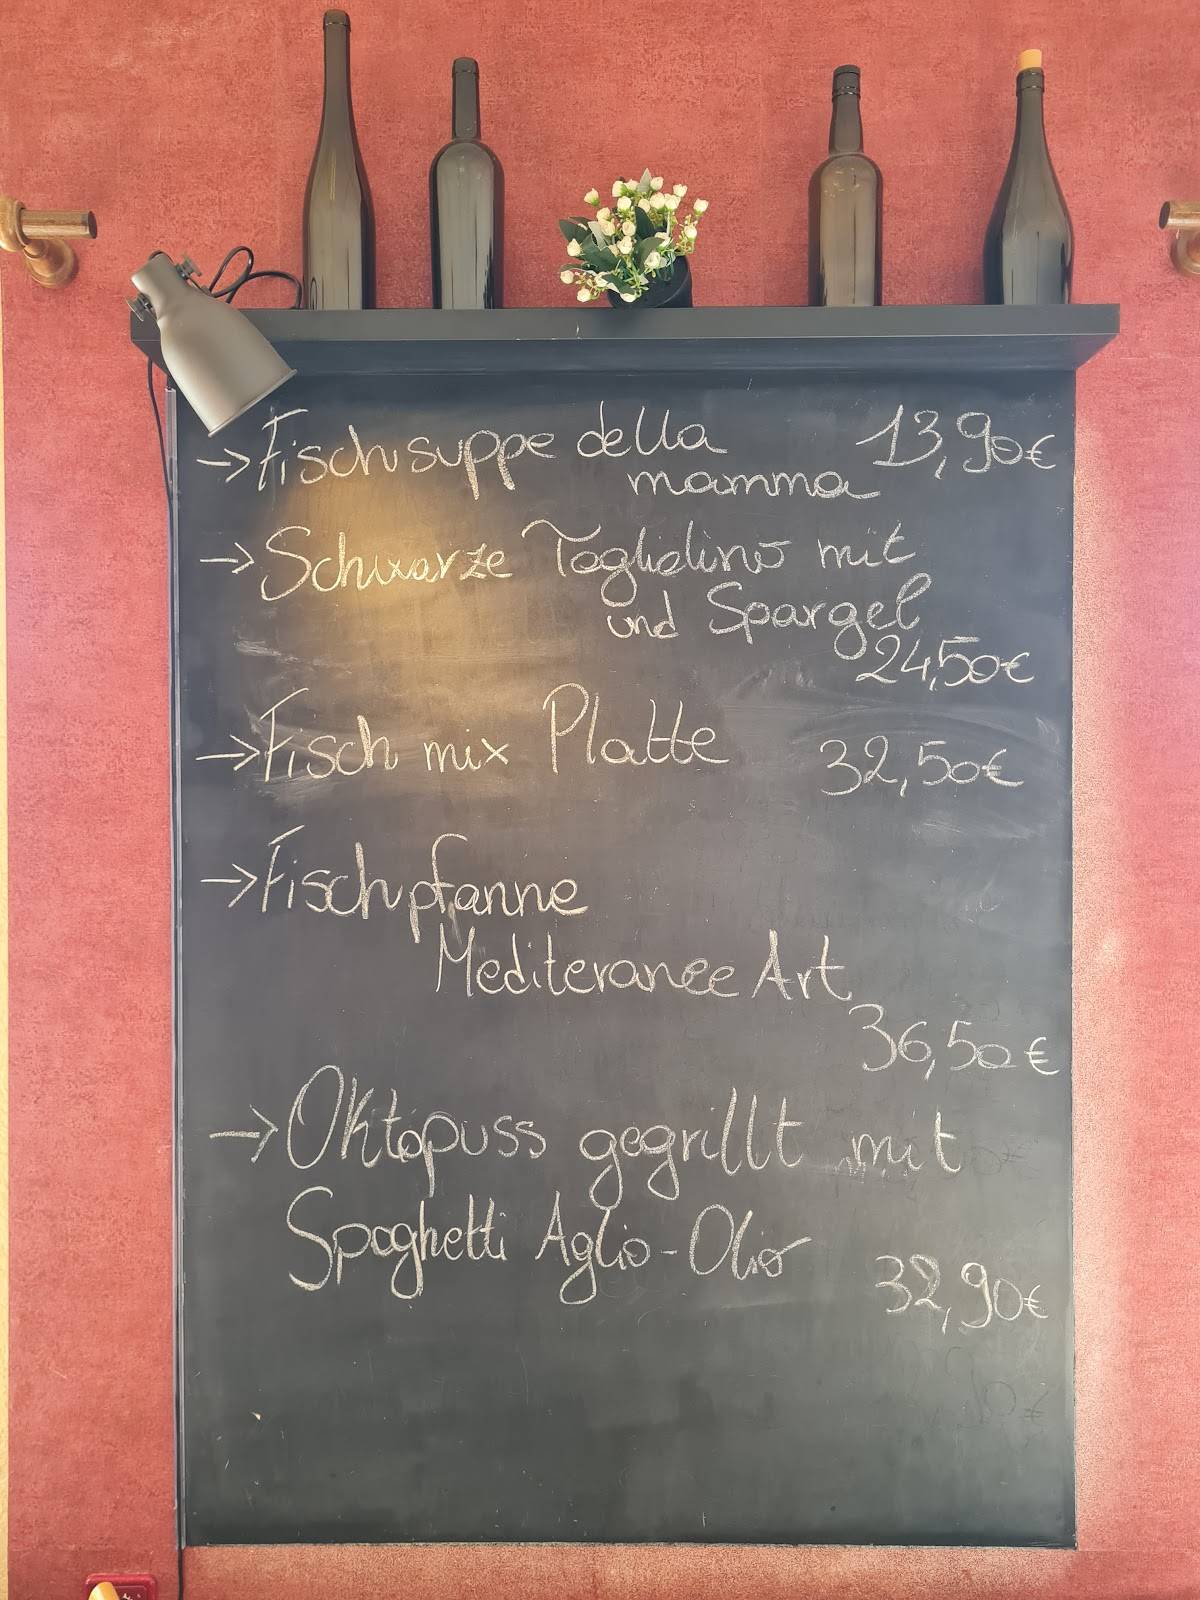 → Fischsuppe della 13,90€
mamma
→ Schwarze Togliolino mit
und Spargel
24,50€
→ Fisch mix Platte 32,50€
→ Fischpfanne
Mediteranee Art
36,50€
→ Oktopuss gegrillt mit
Spaghetti Aglio-Olio
32,90€